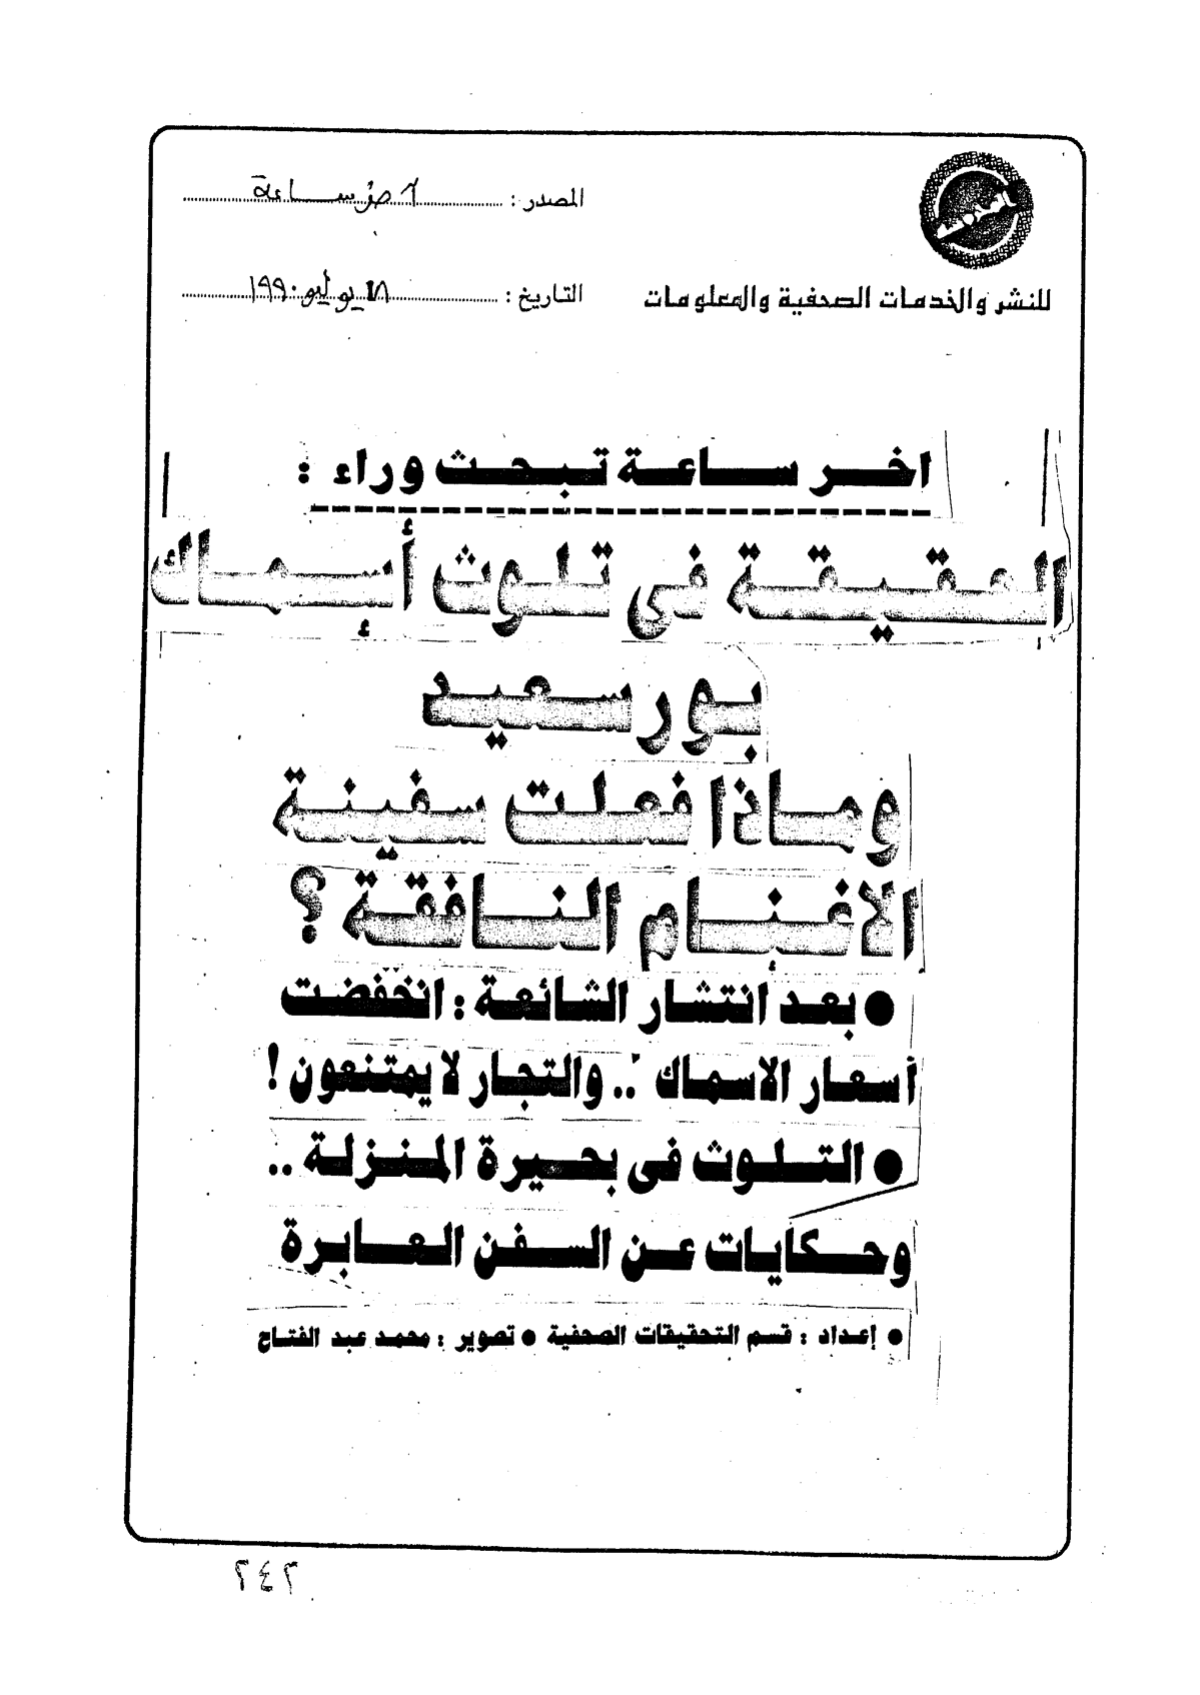 المصدر : اخر ساعة
للنشر والخدمات الصحفية والمعلومات
التاريخ : ١٨ يوليو ١٩٩٠
اخر ساعة تبحث وراء :
الحقيقة فى تلوث أسماك
بورسعيد
وماذا فعلت سفينة
الاغنام النافقة ؟
● بعد إنتشار الشائعة : انخفضت
أسعار الاسماك .. والتجار لا يمتنعون !
● التلوث فى بحيرة المنزلة ..
وحكايات عن السفن العابرة
● إعداد : قسم التحقيقات الصحفية ● تصوير : محمد عبد الفتاح
٢٤٢